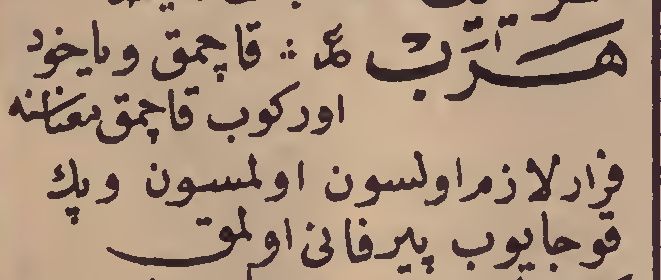 هَرَبْ ؏ ∴ قاچمق ویاخود
اورکوب قاچمق معناسنه
فرار لازم اولسون اولمسون وپك
قوجایوب پیر فانی اولمق